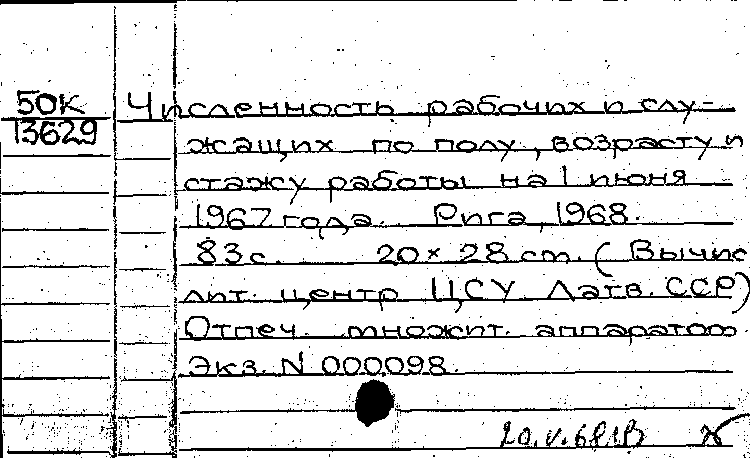 50К Численность рабочих и слу-
13629 жащих по полу, возрасту и
стажу работы на 1 июня
1967 года. Рига, 1968.
83 с. 20 × 28 ст. (Вычис
лит. центр ЦСУ Латв. ССР)
Отпеч. множит. аппаратом
Экз. N 000098.
20.V.68